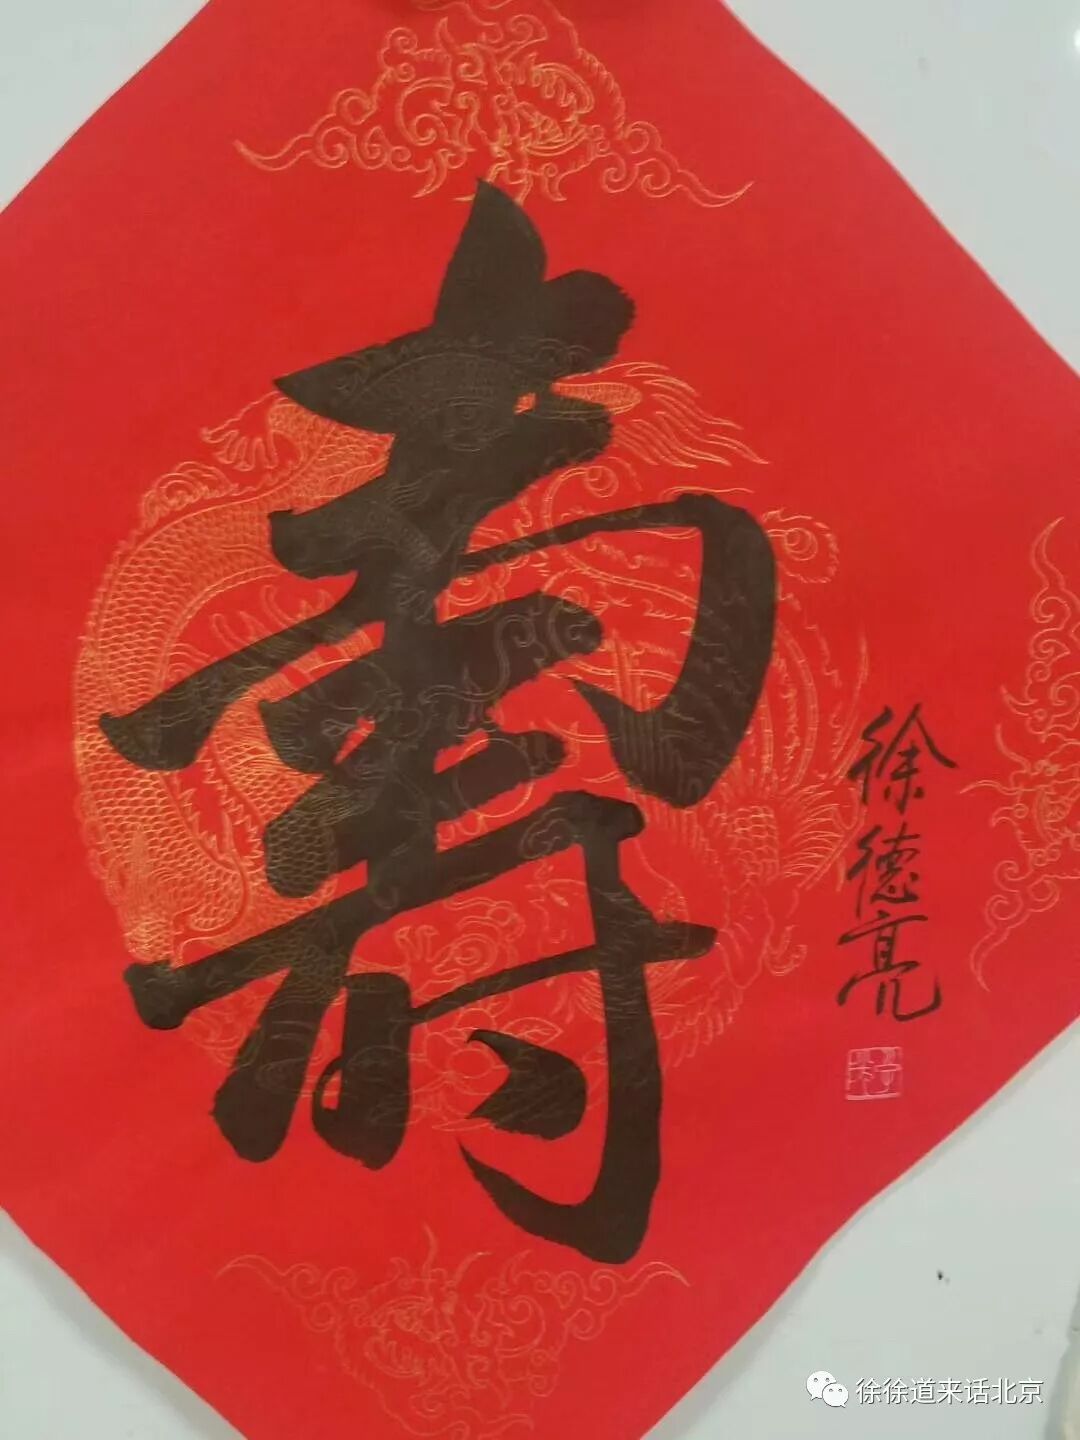 壽
徐德亮
徐徐道来话北京